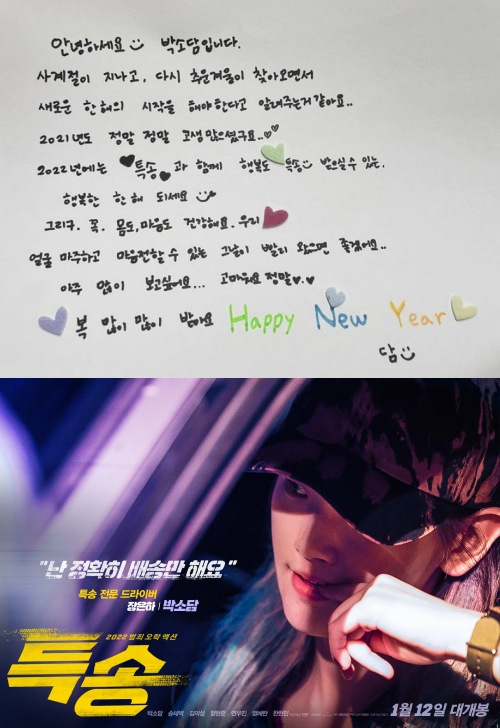 안녕하세요 박소담입니다.
사계절이 지나고, 다시 추운겨울이 찾아오면서
새로운 한해의 시작을 해야한다고 알려주는거같아요..
2021년도 정말 정말 고생많으셨구요..
2022년에는 특송 과 함께 행복도 특송 받으실수 있는.
행복한 한해 되세요
그리구. 꼭. 몸도,마음도 건강해요. 우리
얼굴 마주하고 마음전할 수 있는 그날이 빨리 왔으면 좋겠어요..
아주 많이 보고싶어요... 고마워요 정말
복 많이 많이 받아요 Happy New Year
담
"난 정확히 배송만 해요"
특송 전문 드라이버
장은하 | 박소담
2022 범죄 오락 액션
특송
박소담 송새벽 김의성 정현준 연우진 염혜란 한현민
1월 12일 대개봉